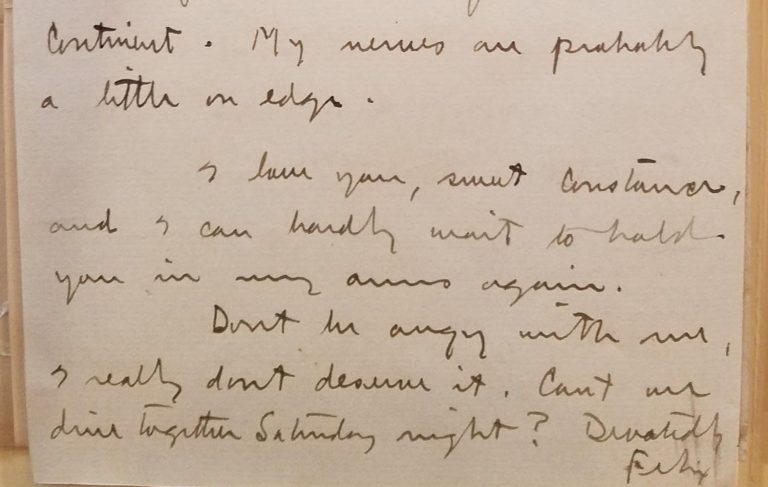 Continent. My nerves are probably
a little on edge.
I love you, sweet Constance,
and I can hardly wait to hold
you in my arms again.
Don't be angry with me,
I really don't deserve it. Can't we
dine together Saturday night? Devotedly
Felix